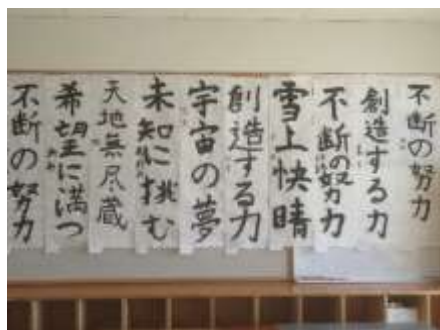 不断の努力
創造する力
不断の努力
雪上快晴
創造する力
宇宙の夢
未知に挑む
天地無尽蔵
希望に満つ
不断の努力